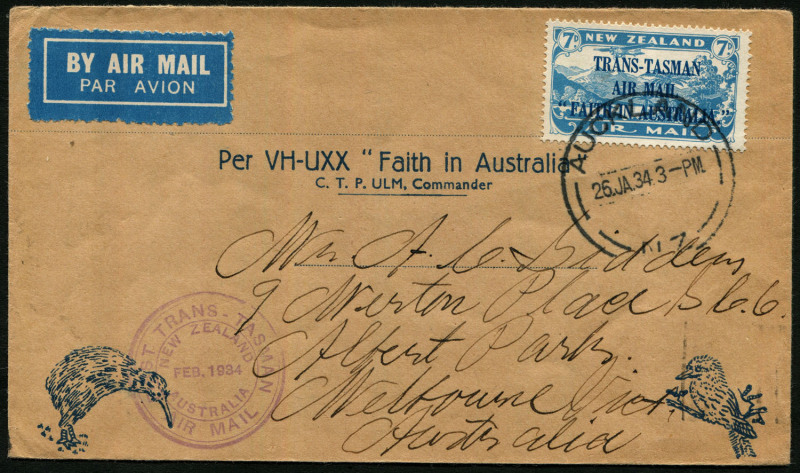 BY AIR MAIL
PAR AVION
7D NEW ZEALAND 7D
TRANS-TASMAN
AIR MAIL
"FAITH IN AUSTRALIA."
AIR MAIL
AUCKLAND
26.JA.34.3-PM.
N.Z.
Per VH-UXX "Faith in Australia"
C. T. P. ULM, Commander
A. C. Giddens
9 Merton Place
Albert Park.
Melbourne Vict
Australia
FIRST TRANS-TASMAN
NEW ZEALAND
FEB. 1934
AUSTRALIA
AIR MAIL